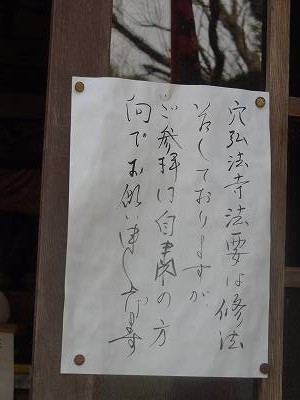 穴弘法寺法要は修法
致しておりますが
ご参拝は自粛の方
向でお願い致します